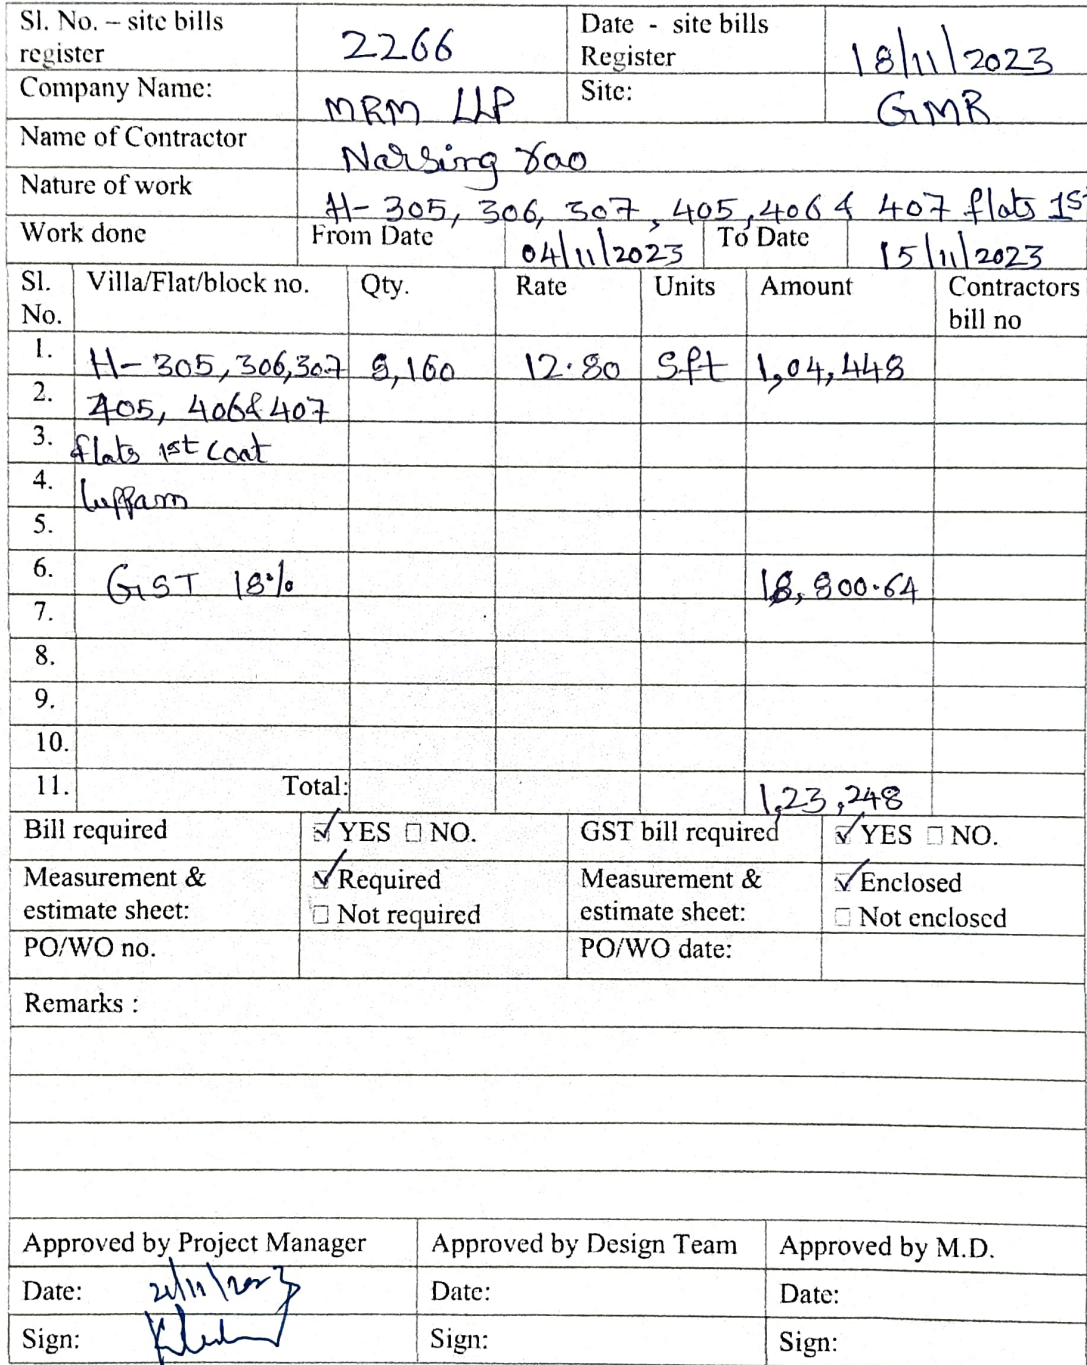 Sl. No. – site bills register 2266 Date - site bills Register 18/11/2023
Company Name: MRM LLP Site: GMR
Name of Contractor Narsing rao
Nature of work H- 305, 306, 307, 405, 406 & 407 flats 1st
Work done From Date 04/11/2023 To Date 15/11/2023
Sl. No. Villa/Flat/block no. Qty. Rate Units Amount Contractors bill no
1. H- 305, 306, 307 8,160 12.80 Sft 1,04,448
2. 405, 406 & 407
3. flats 1st coat
4. luppam
5.
6. GST 18% 18,800.64
7.
8.
9.
10.
11. Total: 1,23,248
Bill required YES NO. GST bill required YES NO.
Measurement & estimate sheet: Required Not required Measurement & estimate sheet: Enclosed Not enclosed
PO/WO no. PO/WO date:
Remarks :
Approved by Project Manager Approved by Design Team Approved by M.D.
Date: Date: Date:
Sign: Sign: Sign: